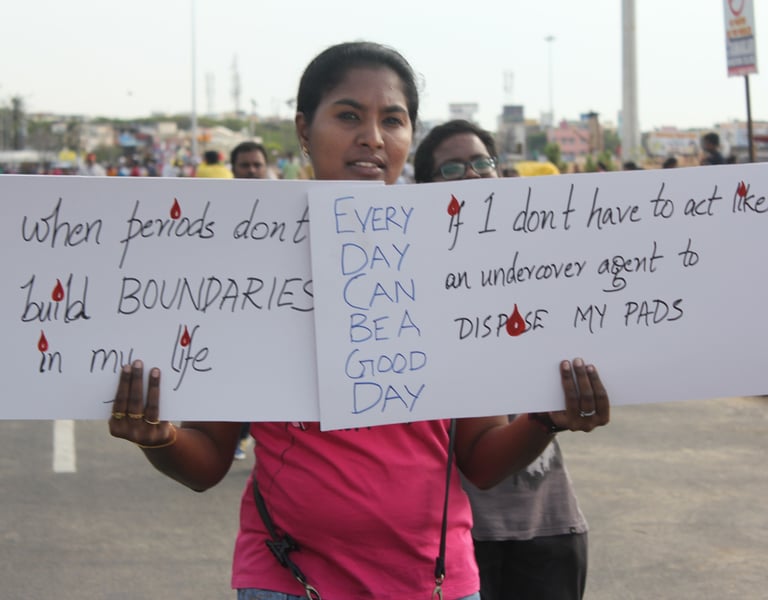 when periods dont
build BOUNDARIES
in my life
EVERY
DAY
CAN
BE A
GOOD
DAY
if I dont have to act like
an undercover agent to
DISPOSE MY PADS